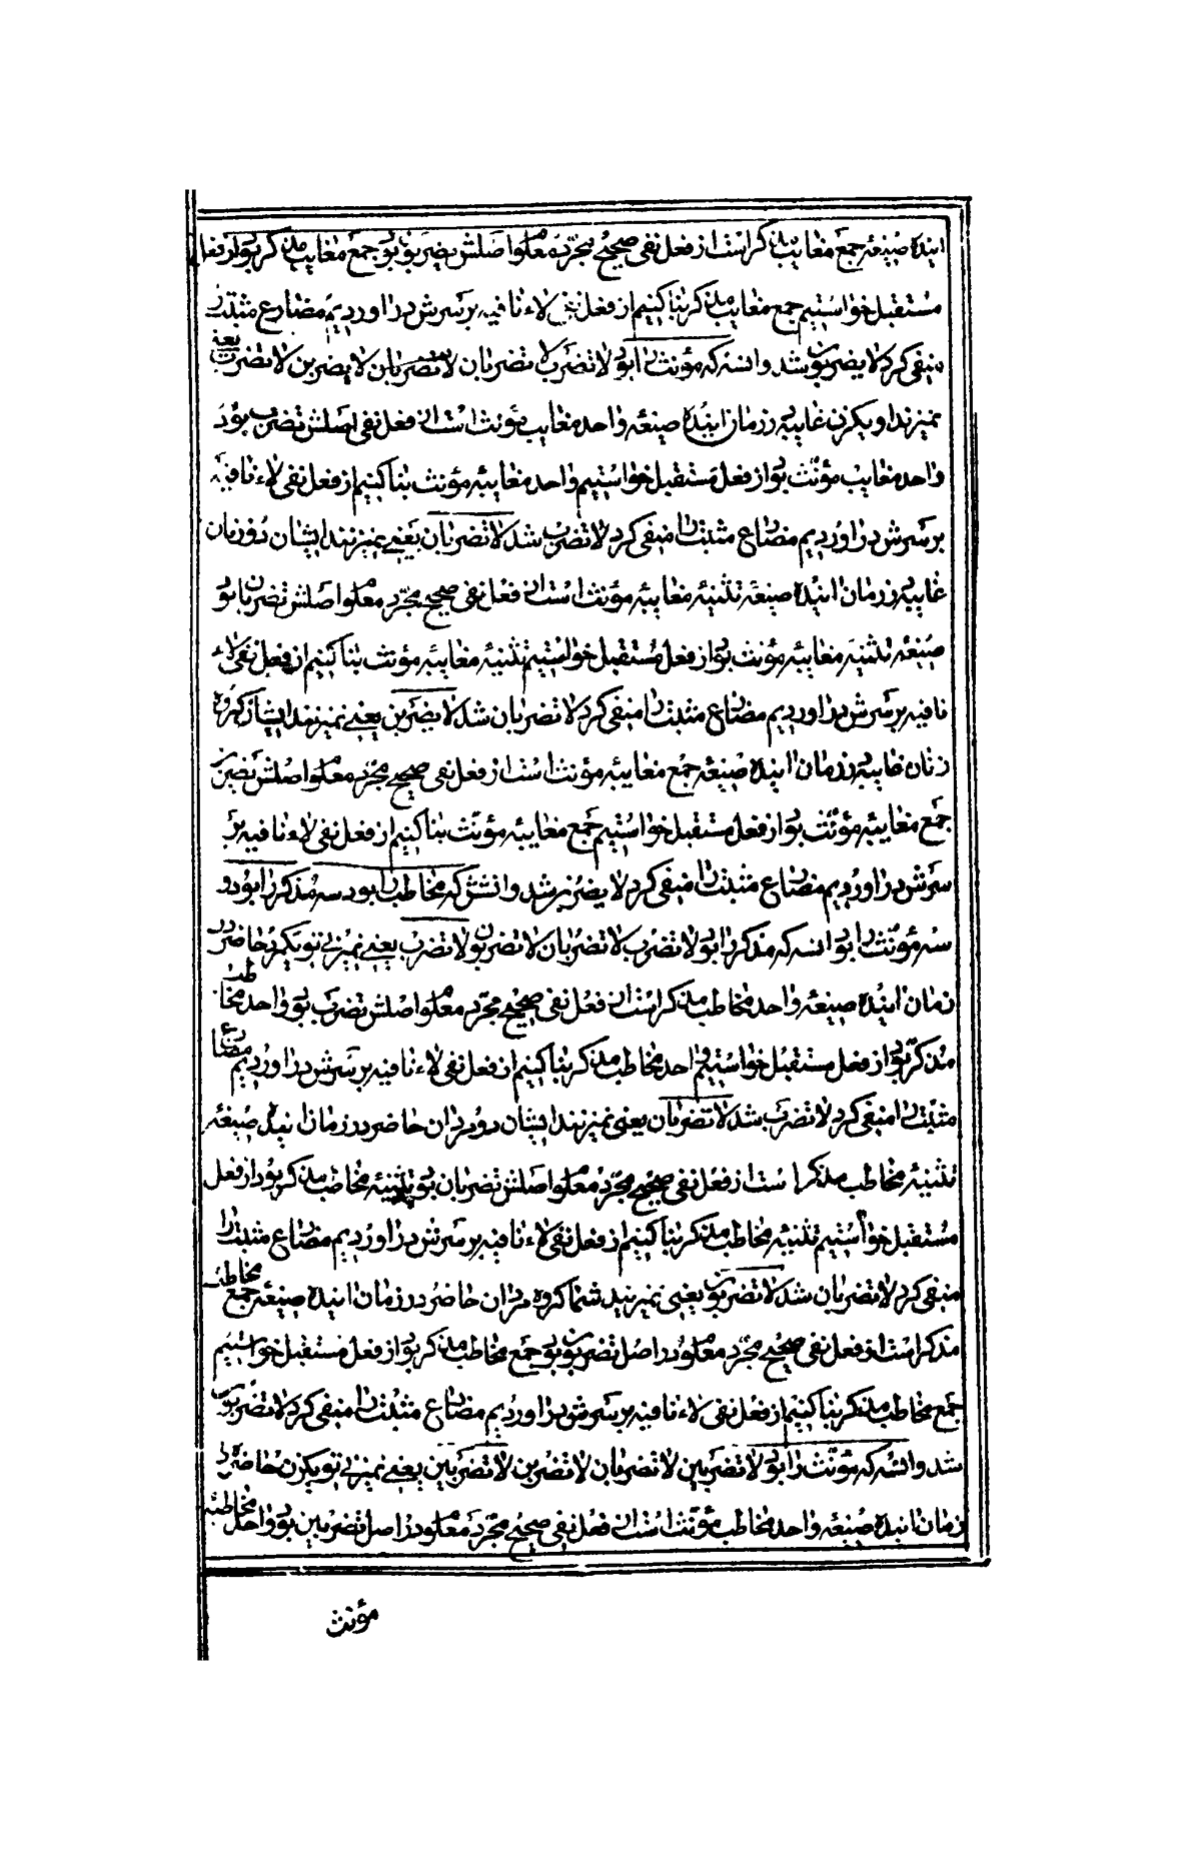 اینده صیغه جمع مغایب مذکر است از فعل نفی صحیح مجرد معلوم اصلش یضربون بود جمع مغایب مذکر بود از فعل
مستقبل خواستیم جمع مغایب مذکر بنا کنیم از فعل نفی لاء نافیه بر سرش در اوردیم مضارع مثبت را
منفی کرد لا یضربون شد و انسه که مؤنث را بود لا تضرب لا تضربان لا یضربن لا تضرب یعنی
نمیزند او یکزن غایبه در زمان اینده صیغه واحد مغایب مؤنث است از فعل نفی اصلش تضرب بود
واحد مغایب مؤنث بود از فعل مستقبل خواستیم واحد مغایبه مؤنث بنا کنیم از فعل نفی لاء نافیه
بر سرش در اوردیم مضارع مثبت را منفی کرد لا تضرب شد لا تضربان یعنی نمیزنند ایشان دو زنان
غایبه در زمان اینده صیغه تثنیه مغایبه مؤنث است از فعل نفی صحیح مجرد معلوم اصلش تضربان بود
صیغه تثنیه مغایبه مؤنث بود از فعل مستقبل خواستیم تثنیه مغایبه مؤنث بنا کنیم از فعل نفی لاء
نافیه بر سرش در اوردیم مضارع مثبت را منفی کرد لا تضربان شد لا یضربن یعنی نمیزنند ایشان کروه
زنان غایبه در زمان اینده صیغه جمع مغایبه مؤنث است از فعل نفی صحیح مجرد معلوم اصلش یضربن
جمع مغایبه مؤنث بود از فعل مستقبل خواستیم جمع مغایبه مؤنث بنا کنیم از فعل نفی لاء نافیه بر
سرش در اوردیم مضارع مثبت را منفی کرد لا یضربن شد و انشش که مخاطب را بود سه مذکر را بود و
سه مؤنث را بود انسه که مذکر را بود لا تضرب لا تضربان لا تضربون لا تضرب یعنی نمیزنی تو یکمرد حاضر در
زمان اینده صیغه واحد مخاطب مذکر است از فعل نفی صحیح مجرد معلوم اصلش تضرب بود واحد مخاطب
مذکر بود از فعل مستقبل خواستیم واحد مخاطب مذکر بنا کنیم از فعل نفی لاء نافیه بر سرش در اوردیم مضارع
مثبت را منفی کرد لا تضرب شد لا تضربان یعنی نمیزنند ایشان دو مردان حاضر در زمان اینده صیغه
تثنیه مخاطب مذکر است از فعل نفی صحیح مجرد معلوم اصلش تضربان بود تثنیه مخاطب مذکر بود از فعل
مستقبل خواستیم تثنیه مخاطب مذکر بنا کنیم از فعل نفی لاء نافیه بر سرش در اوردیم مضارع مثبت را
منفی کرد لا تضربان شد لا تضربون یعنی نمیزنید شما کروه مردان حاضر در زمان اینده صیغه جمع مخاطب
مذکر است از فعل نفی صحیح مجرد معلوم در اصل تضربون بود جمع مخاطب مذکر بود از فعل مستقبل خواستیم
جمع مخاطب مذکر بنا کنیم از فعل نفی لاء نافیه بر سرش در اوردیم مضارع مثبت را منفی کرد لا تضربون
شد و انسه که مؤنث را بود لا تضربین لا تضربان لا تضربن لا تضربین یعنی نمیزنی تو یکزن حاضر در
زمان اینده صیغه واحد مخاطب مؤنث است از فعل نفی صحیح مجرد معلوم در اصل تضربین بود واحد مخاطبه
مؤنث